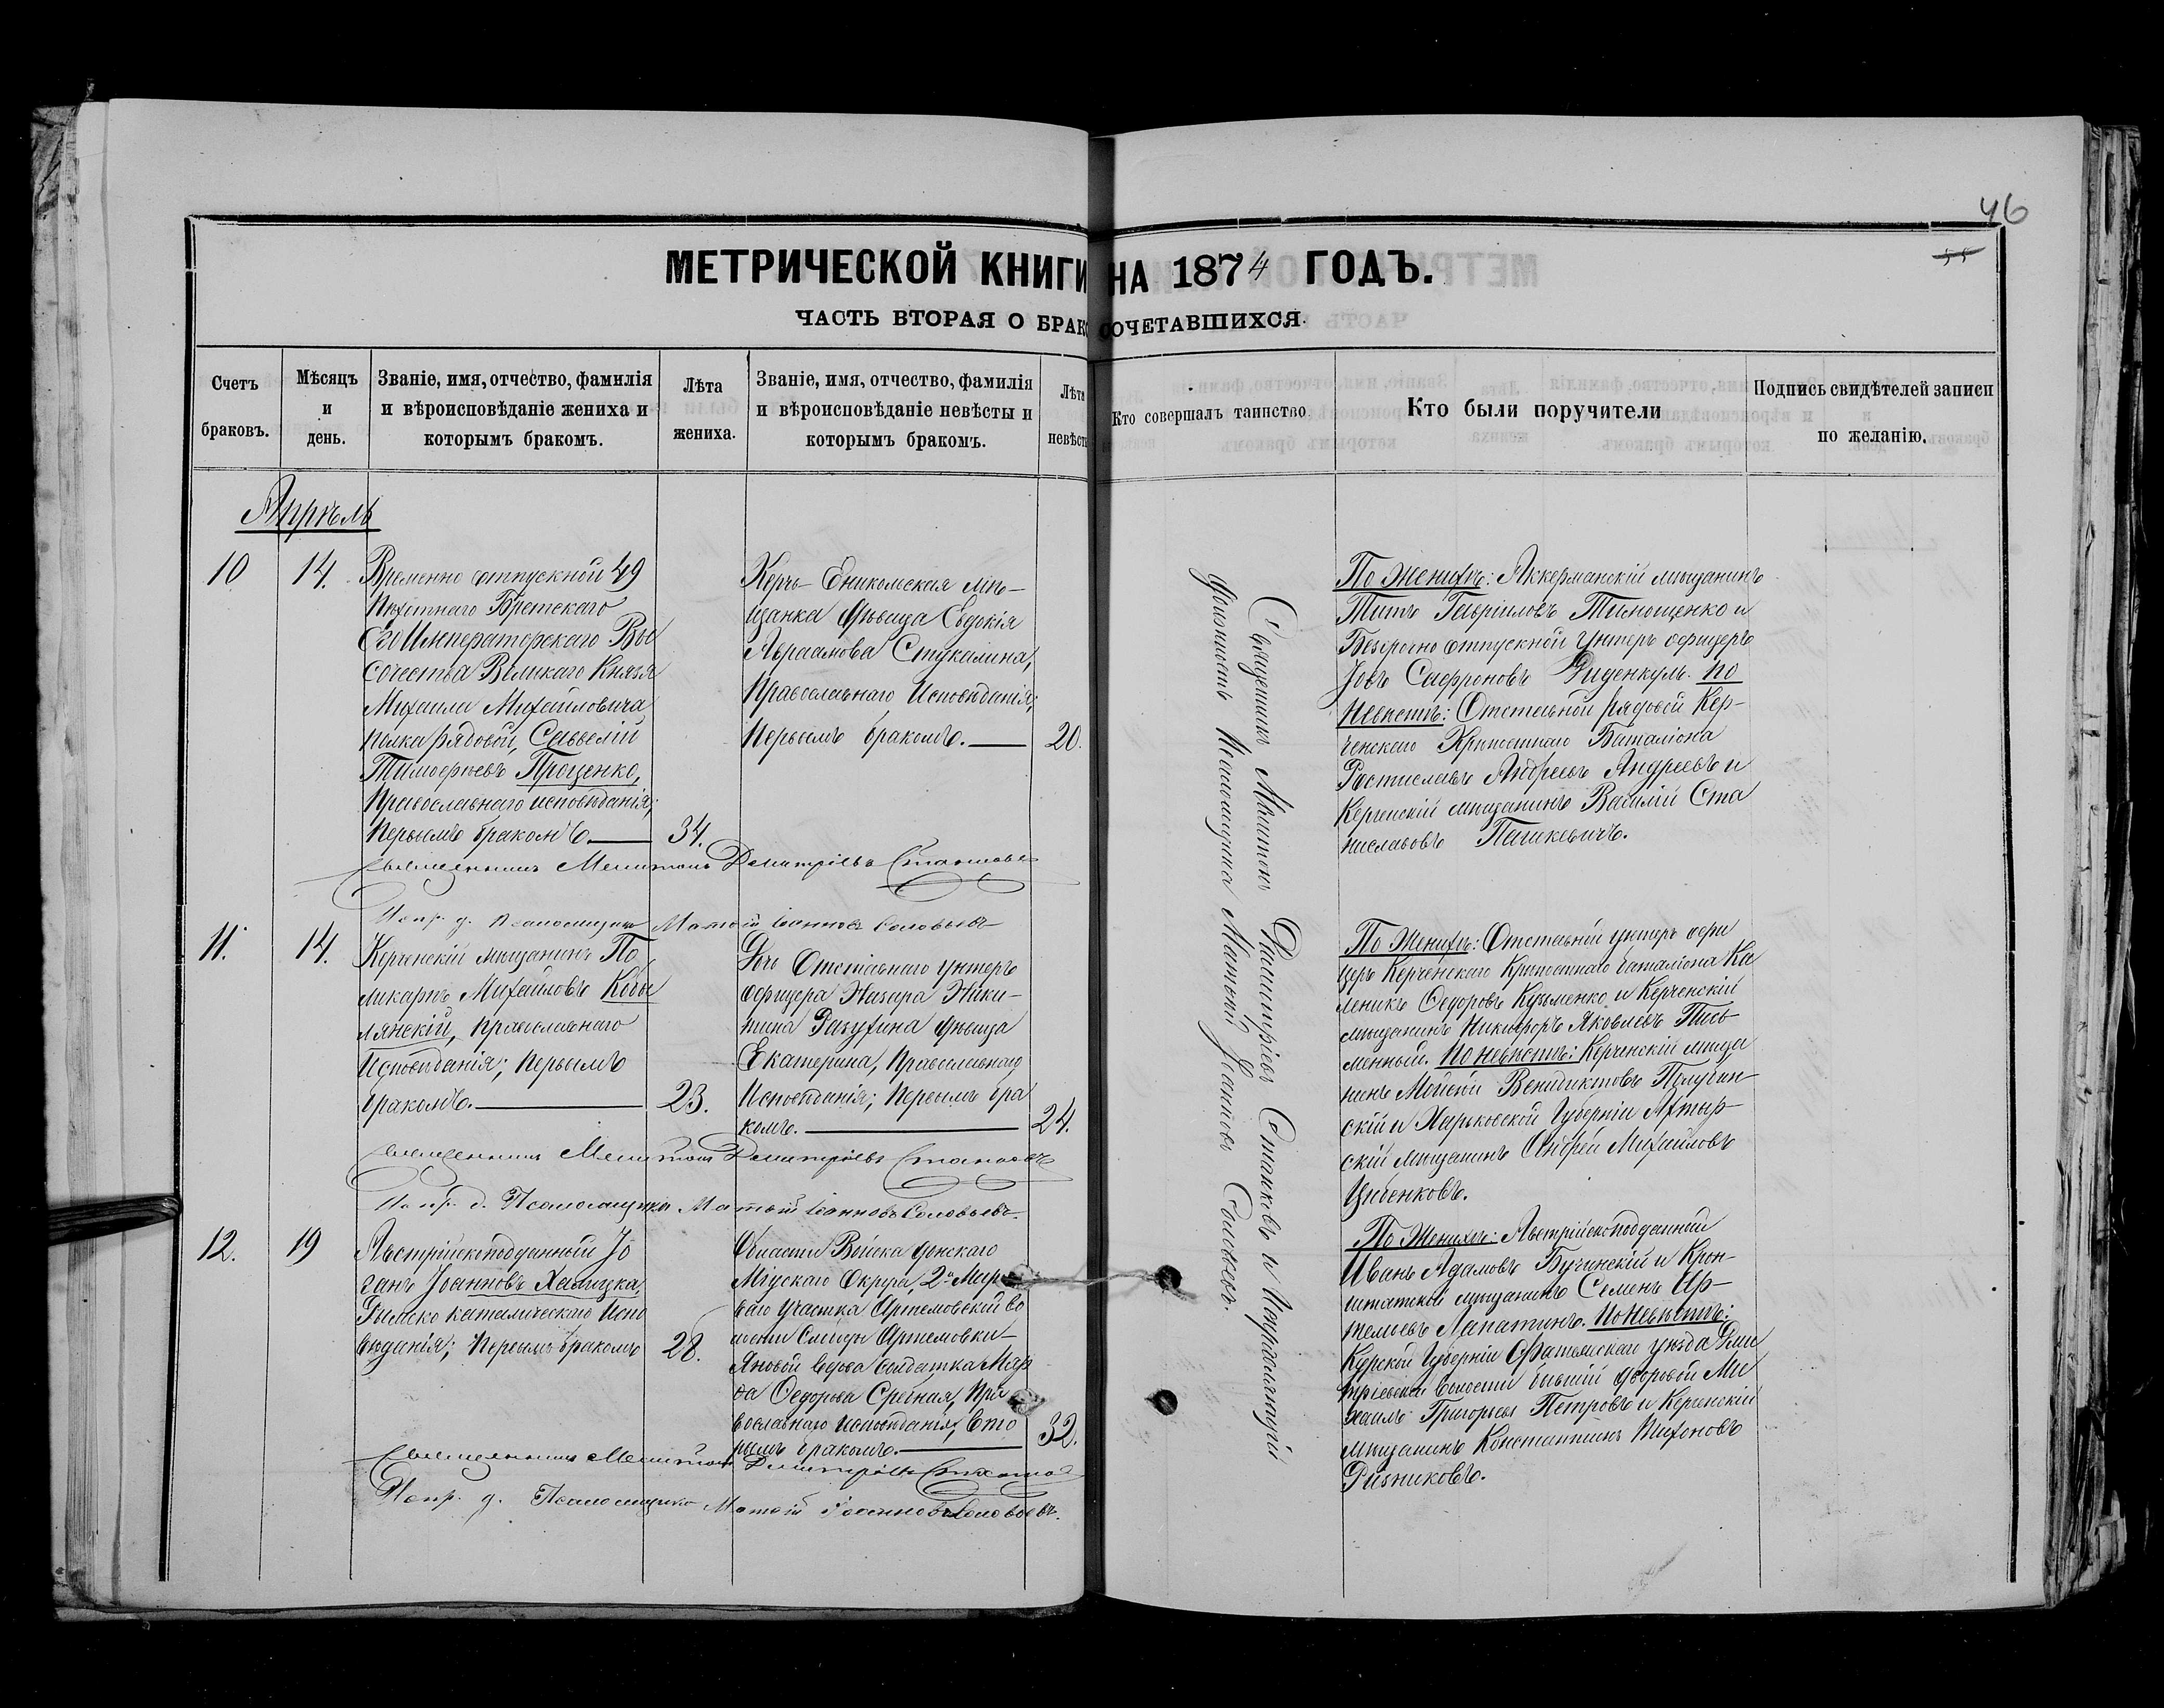 46
55
МЕТРИЧЕСКОЙ КНИГИ НА 1874 ГОДЪ.
ЧАСТЬ ВТОРАЯ О БРАКОСОЧЕТАВШИХСЯ.
Счетъ браковъ.
Мѣсяцъ и день.
Званіе, имя, отчество, фамилія
и вѣроисповѣданіе жениха и
которымъ бракомъ.
Лѣта жениха.
Званіе, имя, отчество, фамилія
и вѣроисповѣданіе невѣсты и
которымъ бракомъ.
Лѣта невѣсты
Кто совершалъ таинство.
Кто были поручители
Подпись свидѣтелей записи
по желанію.
Апрѣль
10
14.
Временно отпускной 49
Пѣхотнаго Брестскаго
Его Императорскаго Вы
сочества Великаго Князя
Михаила Михайловича
полка рядовой, Савелій
Тимофѣевъ Проценко,
Православнаго исповѣданія;
Первымъ бракомъ.
34.
Керчь-Еникольская мѣ-
щанка дѣвица Евдокія
Авраамова Стукалина,
Православнаго Исповѣданія;
Первымъ бракомъ.
20.
Священникъ Мелитонъ Димитріевъ Станковъ и Исправляющій
должность Псаломщика Матѳій Іоанновъ Соловьевъ.
По Женихѣ: Аккерманскій мѣщанинъ
Титъ Гавріиловъ Тимощенко и
Безсрочно отпускной Унтеръ офицеръ
Іовъ Сафроновъ По
Невѣстѣ: Отставной рядовой Кер-
ченскаго Крѣпостнаго Баталіона
Ростиславъ Андреевъ Андреевъ и
Керченскій мѣщанинъ Василій Ста
ниславовъ Пашкевичъ.
Священникъ Мелитонъ Димитріевъ Станковъ
Испр. д. Псаломщика Матѳій Іоанновъ Соловьевъ
11.
14.
Керченскій мѣщанинъ По
ликарпъ Михайловъ Кобы
лянскій, Православнаго
Исповѣданія; Первымъ
бракомъ.
23.
Дочь Отставнаго Унтеръ
офицера Назара Ники-
тина дѣвица
Екатерина, Православнаго
Исповѣданія; Первымъ бра
комъ.
24.
По Женихѣ: Отставной унтеръ офи
церъ Керченскаго Крѣпостнаго баталіона Ка
леникъ Ѳедоровъ Кузьменко и Керченскій
мѣщанинъ Никифоръ Яковлевъ Пись-
менный. По невѣстѣ: Керченскій мѣща
нинъ Мойсей Венидиктовъ
и Харьковской Губерніи Ахтыр-
скій мѣщанинъ Андрей Михайловъ
Священникъ Мелитонъ Димитріевъ Станковъ
Испр. д. Псаломщика Матѳій Іоанновъ Соловьевъ.
12.
19
Австрійскоподданный Іо
ганъ Іоанновъ
Римско католическаго Испо
вѣданія; Первымъ бракомъ
28.
Области Войска Донскаго
Міусскаго Округа, 2го Миро
ваго Участка Артемовской во
лости Слободы Артемовки-
Яновой вдова Солдатка Мар
ѳа Ѳедорова Пра
вославнаго исповѣданія, Вто
рымъ бракомъ.
32.
По Женихѣ: Австрійскоподданный
Иванъ Адамовъ Бучинскій и Крон-
штатской мѣщанинъ Семенъ Ар-
темьевъ Лапатинъ. По Невѣстѣ:
Курской Губерніи Фатежскаго уѣзда Дми
тріевской Волости бывшій дворовой Ми
хаилъ Григорьевъ Петровъ и Керченскій
мѣщанинъ Константинъ Тихоновъ
Ризниковъ.
Священникъ Мелитонъ Димитріевъ Станковъ
Испр. д. Псаломщика Матѳій Іоанновъ Соловьевъ.